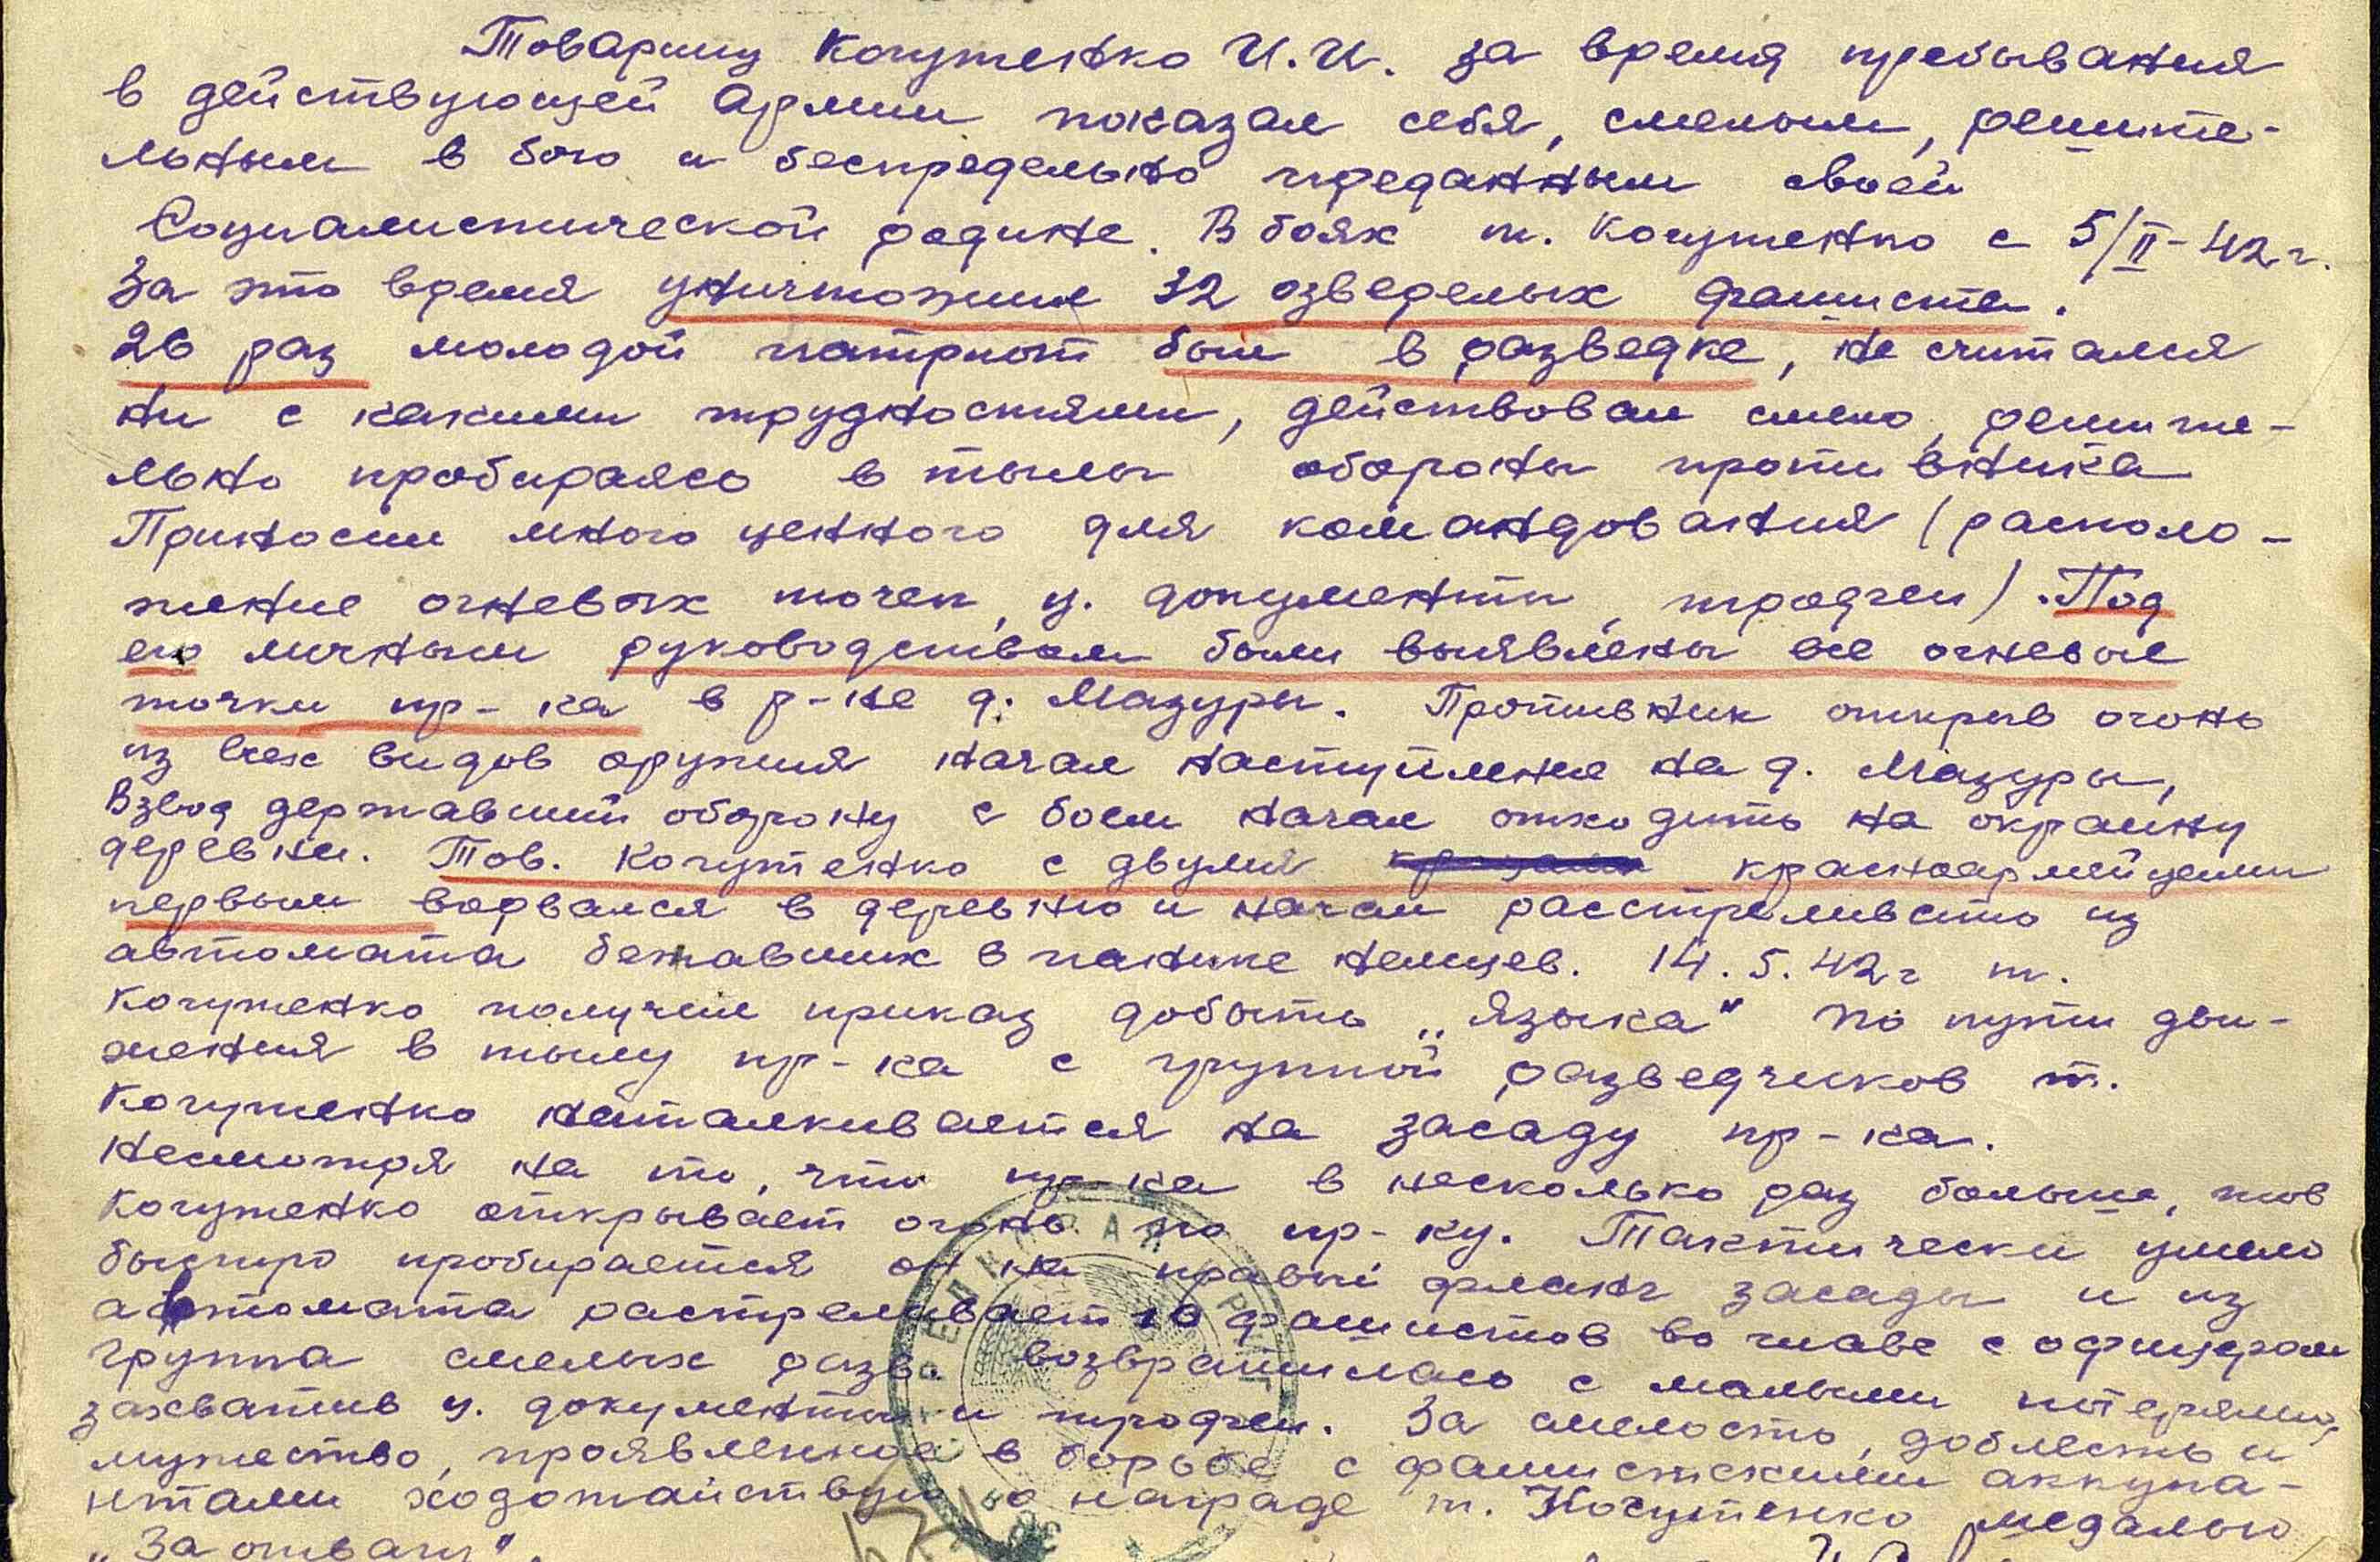 Товарищ Когутенко И.И. за время пребывания
в действующей Армии показал себя, смелым, решите-
льным в бою и беспредельно преданным своей
Социалистической родине. В боях т. Когутенко с 5/II-42 г.
За это время уничтожил 32 озверелых фашиста.
26 раз молодой патриот был в разведке, не считался
ни с какими трудностями, действовал смело, решите-
льно пробираясь в тылы обороны противника
Приносил много ценного для командования (располо-
жение огневых точек, ц. документы, трофеи). Под
его личным руководством были выявлены все огневые
точки пр-ка в р-не д. Мазуры. Противник открыв огонь
из всех видов оружия начал наступление на д. Мазуры,
Взвод державший оборону с боем начал отходить на окраину
деревни. Тов. Когутенко с двумя красноармейцами
первым ворвался в деревню и начал расстреливать из
автомата бежавших в панике немцев. 14.5.42 г т.
Когутенко получил приказ добыть „языка" По пути дви-
жения в тылу пр-ка с группой разведчиков т.
Когутенко наталкивается на засаду пр-ка.
Несмотря на то, что пр-ка в несколько раз больше, тов
Когутенко открывает огонь по пр-ку. Тактически умело
быстро пробирается он на правый фланг засады и из
автомата растреливает 10 фашистов во главе с офицером
Группа смелых разв. возвратилась с малыми потерями,
захватив ц. документы и трофеи. За смелость, доблесть и
мужество, проявленное в борьбе с фашистскими аккупа-
нтами ходотайствую о награде т. Когутенко медалью
„За отвагу".